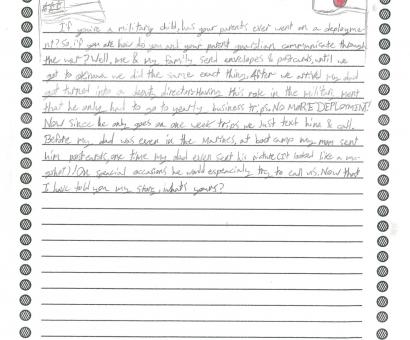 If you're a military child, has your parents ever went on a deployme-
nt? So, if you are how do you and your parent guardian communicate through
the war? Well, me & my family send envelopes & postcards, until we
got to okinawa we did the same exact thing. After we arrived my dad
got turned into a deputy director. Having this role in the military ment
that he only had to go to yearly business trips. NO MORE DEPLOYMENT!
Now since he only goes on one week trips we just text hime & call.
Before my dad was even in the Marines, at boot camp my mom sent
him postcards, one time my dad even sent his picture (it looked like a mu-
gshot)! On special occasions he would especially try to call us. Now that
I have told you my story, what's yours?